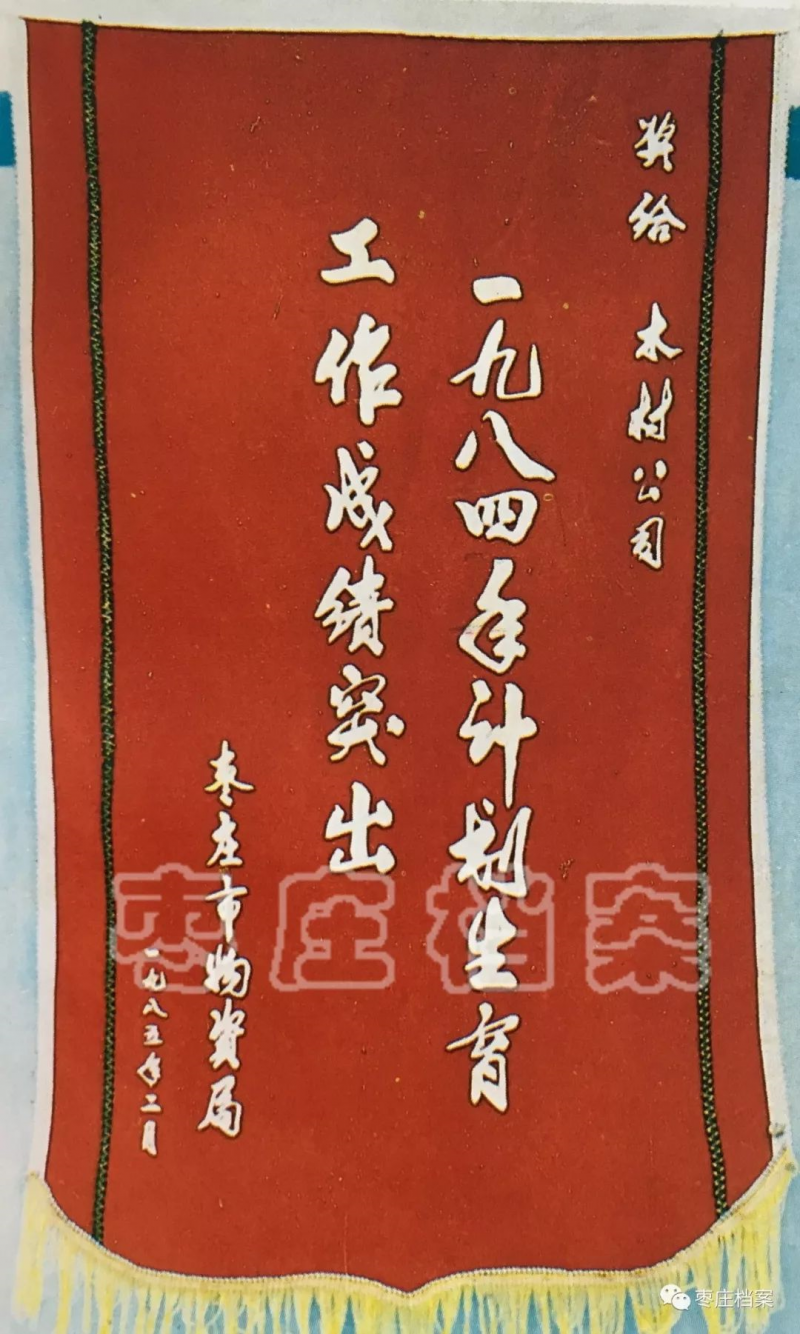 奖给 木材公司
一九八四年计划生育
工作成绩突出
枣庄市物资局
一九八五年二月
枣庄档案
枣庄档案